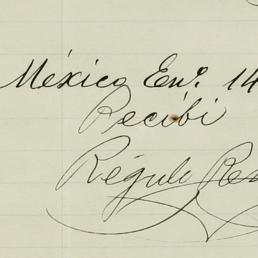 México En.º 14
Recibí
Régulo